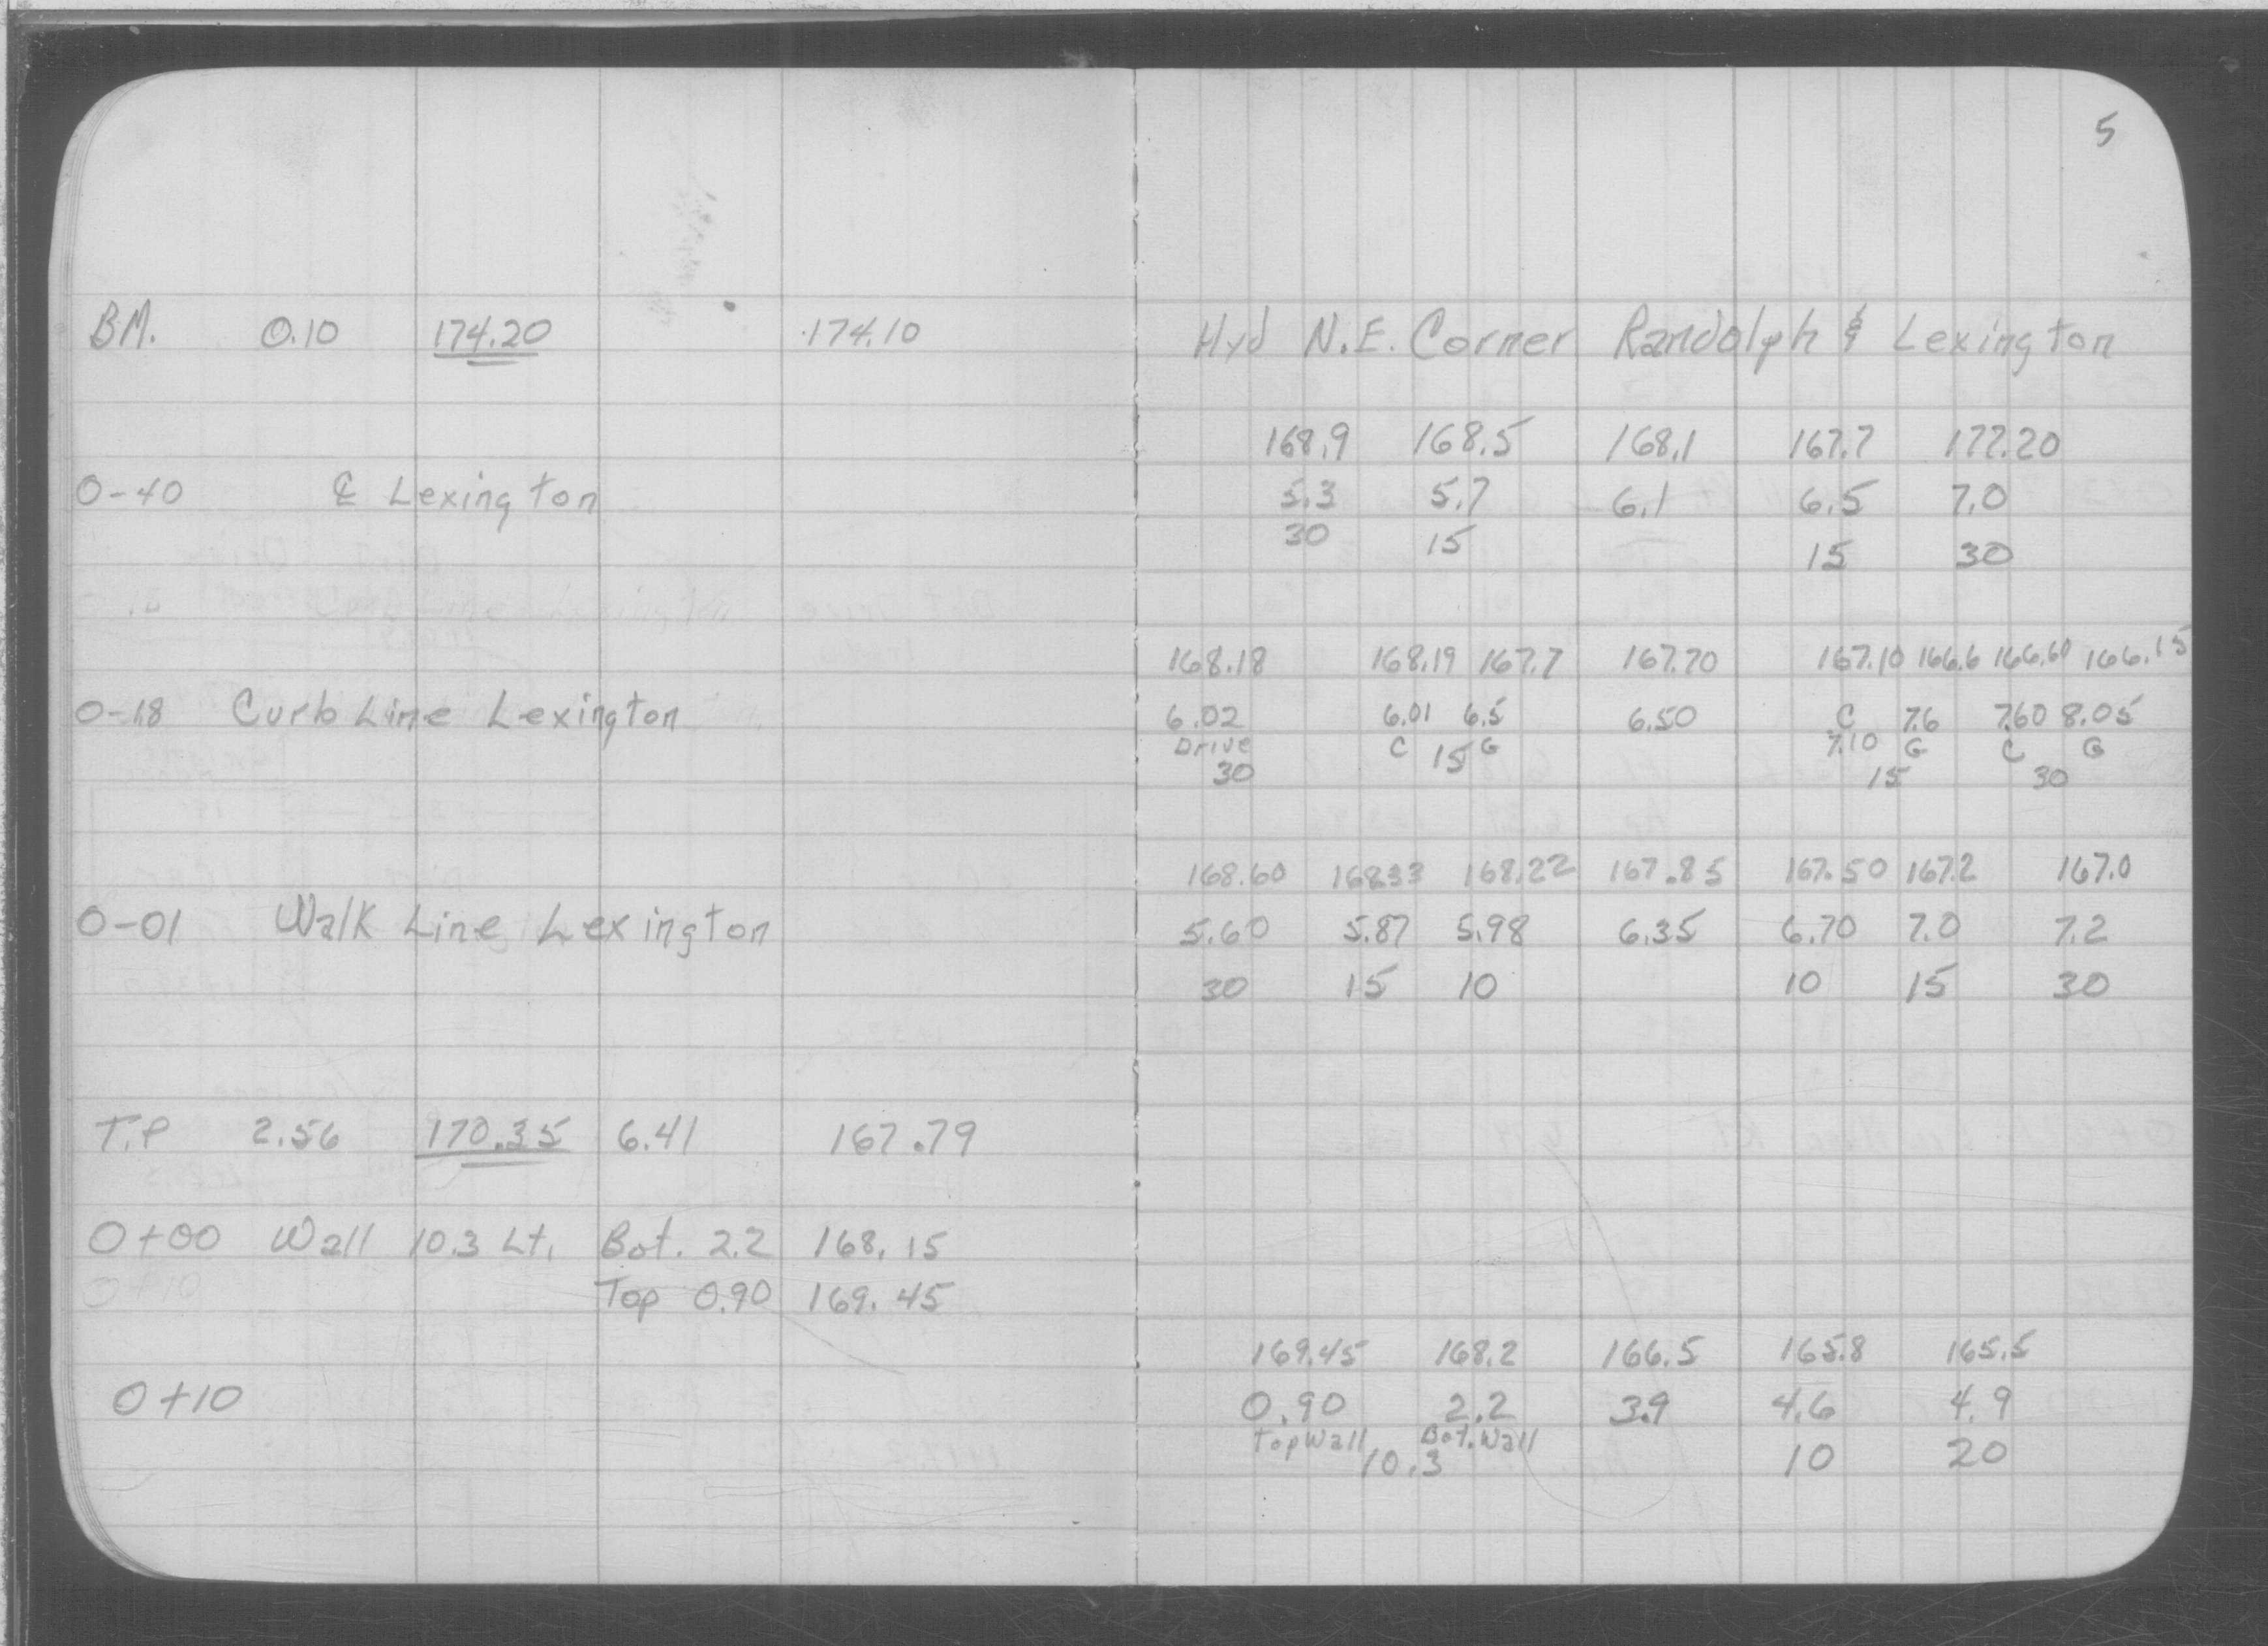 5
BM. 0.10 174.20 174.10 Hyd N.E. Corner Randolph & Lexington
168.9 168.5 168.1 167.7 177.20
0-40 ℄ Lexington 5.3 5.7 6.1 6.5 7.0
30 15 15 30
168.18 168.19 167.7 167.70 167.10 166.6 166.60 166.15
0-18 Curb Line Lexington 6.02 6.01 6.5 6.50 C 7.6 7.60 8.05
Drive C 15 G 7.10 G C G
30 15 30
168.60 168.33 168.22 167.85 167.50 167.2 167.0
0-01 Walk Line Lexington 5.60 5.87 5.98 6.35 6.70 7.0 7.2
30 15 10 10 15 30
T.P 2.56 170.35 6.41 167.79
0+00 Wall 10.3 Lt. Bot. 2.2 168.15
0+10 Top 0.90 169.45
169.45 168.2 166.5 165.8 165.5
0+10 0.90 2.2 3.9 4.6 4.9
Top Wall Bot. Wall
10.3 10 20